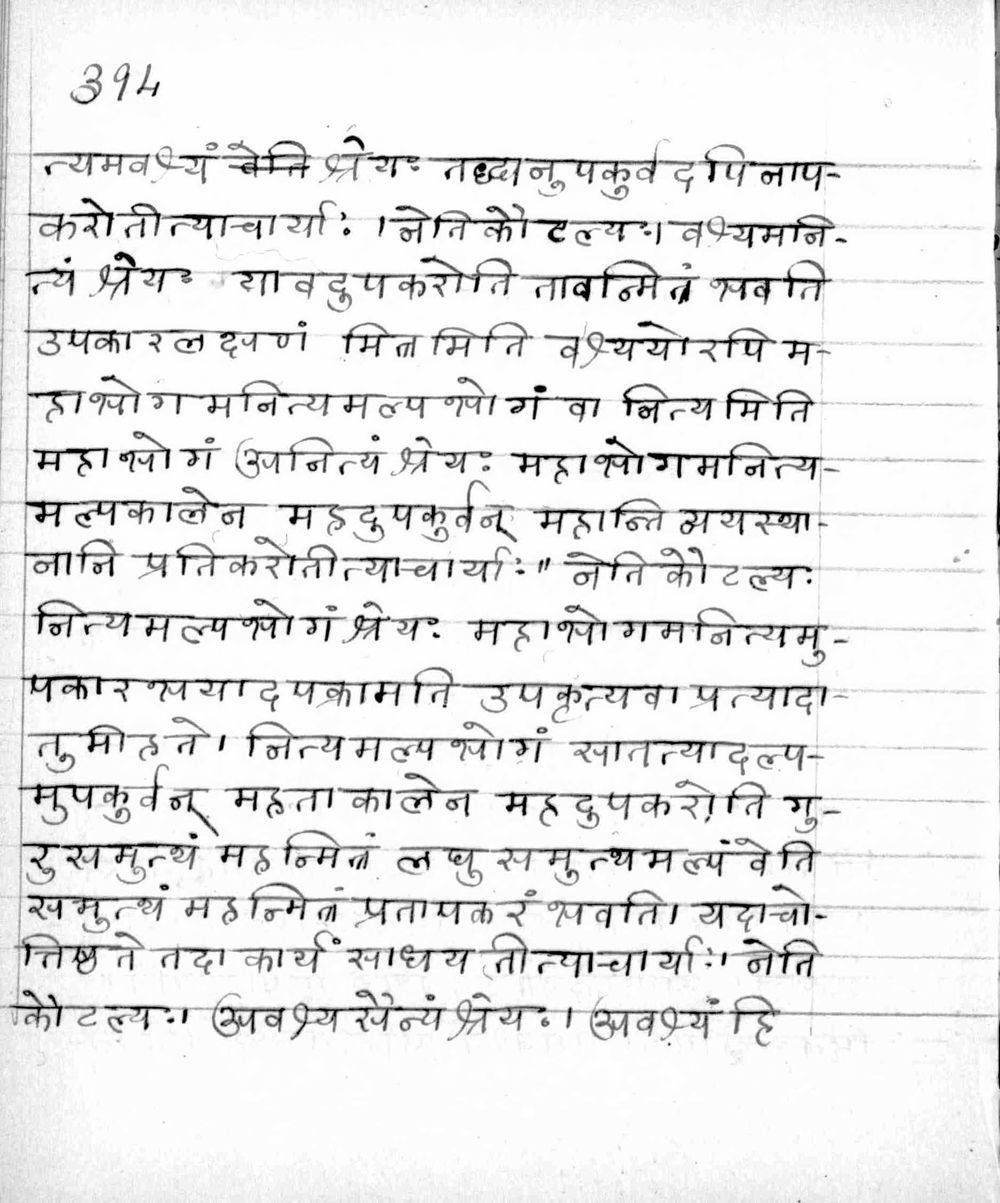 ३१४
त्यमवश्यं श्रेयः तद्ध्यनुपकुर्वदपि नाप-
करोतीत्याचार्याः । नेति कौटल्यः। वश्यमनि-
त्यं श्रेयः यावदुपकरोति तावन्मित्रं भवति
उपकारलक्षणं मित्रमिति वश्ययोरपि म-
हाभोगमनित्यमल्पभोगं वा नित्यमिति
महाभोगं अनित्यं श्रेयः महाभोगमनित्य-
मल्पकालेन महदुपकुर्वन् महान्ति व्ययस्था-
नानि प्रतिकरोतीत्याचार्याः॥ नेति कौटल्यः
नित्यमल्पभोगं श्रेयः महाभोगमनित्यमु-
पकारभयादपक्रामति उपकृत्य वा प्रत्यादा-
तुमीहते। नित्यमल्पभोगं सातत्यादल्प-
मुपकुर्वन् महता कालेन महदुपकरोति गु-
रुसमुत्थं महन्मित्रं लघुसमुत्थमल्पं वेति
समुत्थं महन्मित्रं प्रतापकरं भवति। यदा चो-
त्तिष्ठते तदा कार्यं साधयतीत्याचार्याः। नेति
कौटल्यः। अवश्यसैन्यं श्रेयः। अवश्यं हि